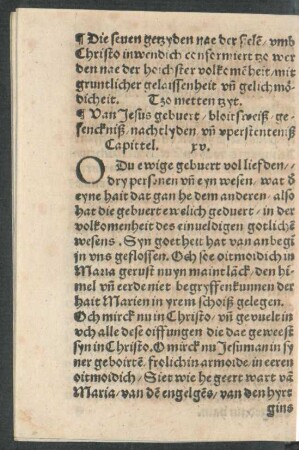 ¶ Die seuen getzyden nae der selẽ / vmb
Christo inwendich cõformiert tzo wer
den nae der hoichster volkomẽheit / mit
gruntlicher gelaissenheit vñ gelichmö-
dicheit. Tzo metten tzyt.
¶ Van Jesus gebuert / bloitsweiß / ge-
fenckniß / nachtlyden / vñ vperstentenîß
Capittel. xv.
O Du ewige gebuert vol liefden /
dry personen vñ eyn wesen / wat d̓
eyne hait dat gan he dem anderen / also
hat die gebuert ewelich geduert / in der
volkomenheit des einueldigen gotlichẽ
wesens. Syn goetheit hat van anbegĩ
in vns geflossen. Och soe oitmoidich in
Maria gerust nuyn maint läck / den hi-
mel vñ eerde niet begryffen kunnen der
hait Marien in yrem schoiß gelegen.
Och mirck nu in Christo / vñ geuuele in
vch alle dese oiffungen die dae geweest
syn in Christo. O mirck nu Jesum an in sy
ner geboirtẽ / frolich in armoide / in eeren
oitmoidich / Siet wie he geert wart vã
Maria / van dẽ engelgẽs / van den hyrt
gins